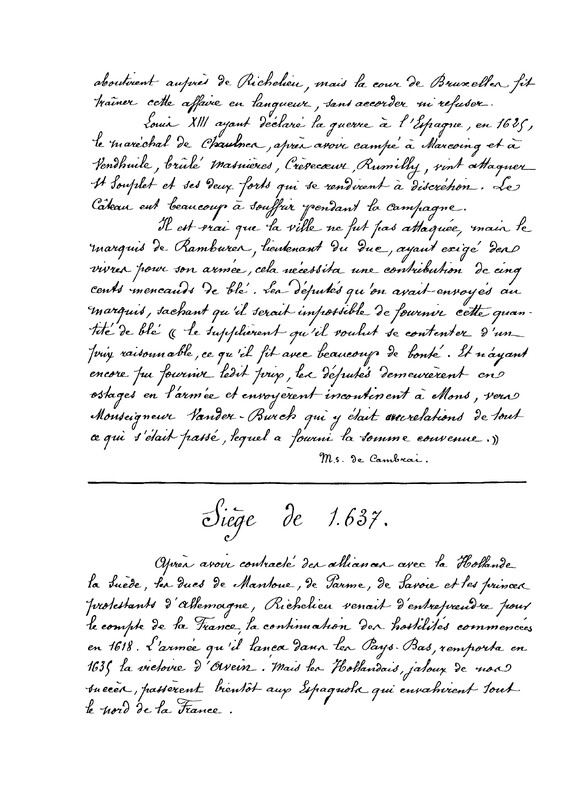 aboutirent auprès de Richelieu, mais la cour de Bruxelles fit
traîner cette affaire en langueur, sans accorder ni refuser.
Louis XIII ayant déclaré la guerre à l'Espagne, en 1635,
le maréchal de Chaulnes, après avoir campé à Marcoing et à
Vendhuile, brûlé Masnières, Crèvecœur Rumilly, vint attaquer
St Souplet et ses deux forts qui se rendirent à discrétion. Le
Câteau eut beaucoup à souffrir pendant la campagne.
Il est vrai que la ville ne fut pas attaquée, mais le
marquis de Rambures, lieutenant du duc, ayant exigé des
vivres pour son armée, cela nécessita une contribution de cinq
cents mencauds de blé. Les députés qu'on avait envoyés au
marquis, sachant qu'il serait impossible de fournir cette quan-
tité de blé « le supplièrent qu'il voulut se contenter d'un
prix raisonnable, ce qu'il fit avec beaucoup de bonté. Et n'ayant
encore pu fournir ledit prix, les députés demeurèrent en
ostages en l'armée et envoyèrent incontinent à Mons, vers
Monseigneur Vander-Burch qui y était relations de tout
ce qui s'était passé, lequel a fourni la somme convenue. »
M.s. de Cambrai.
Siège de 1.637.
Après avoir contracté des alliances avec la Hollande
la Suède, les ducs de Mantoue, de Parme, de Savoie et les princes
protestants d'Allemagne, Richelieu venait d'entreprendre pour
le compte de la France, la continuation des hostilités commencées
en 1618. L'armée qu'il lança dans les Pays-Bas, remporta en
1635 la victoire d'Avein. Mais les Hollandais, jaloux de nos
succès, passèrent bientôt aux Espagnols qui envahirent tout
le nord de la France.